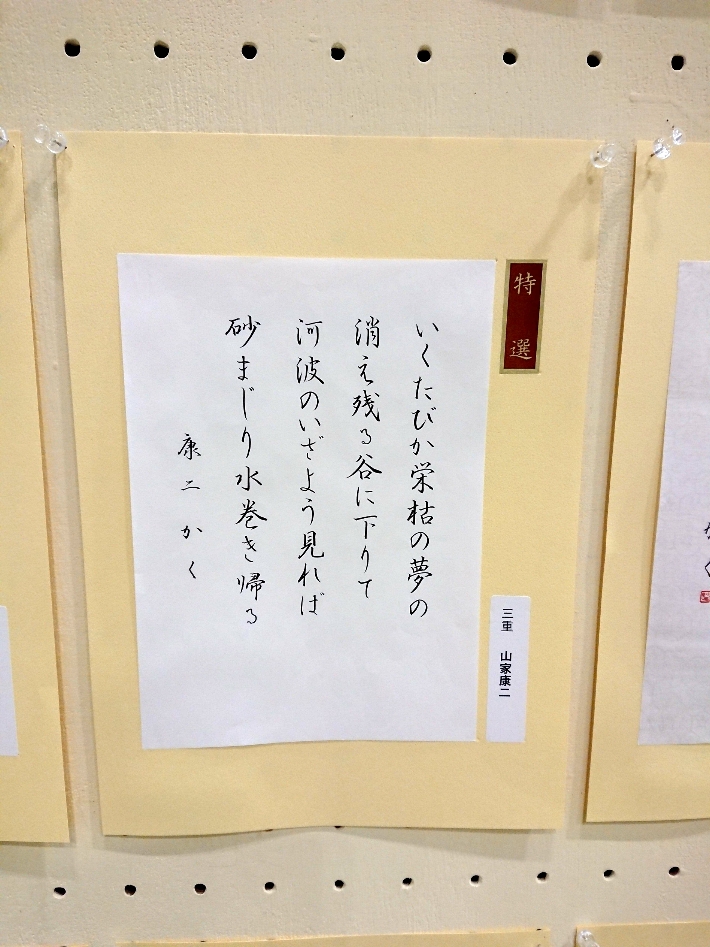 特選
いくたびか栄枯の夢の
消え残る谷に下りて
河波のいざよう見れば
砂まじり水巻き帰る
康二かく
三重 山家康二
かく